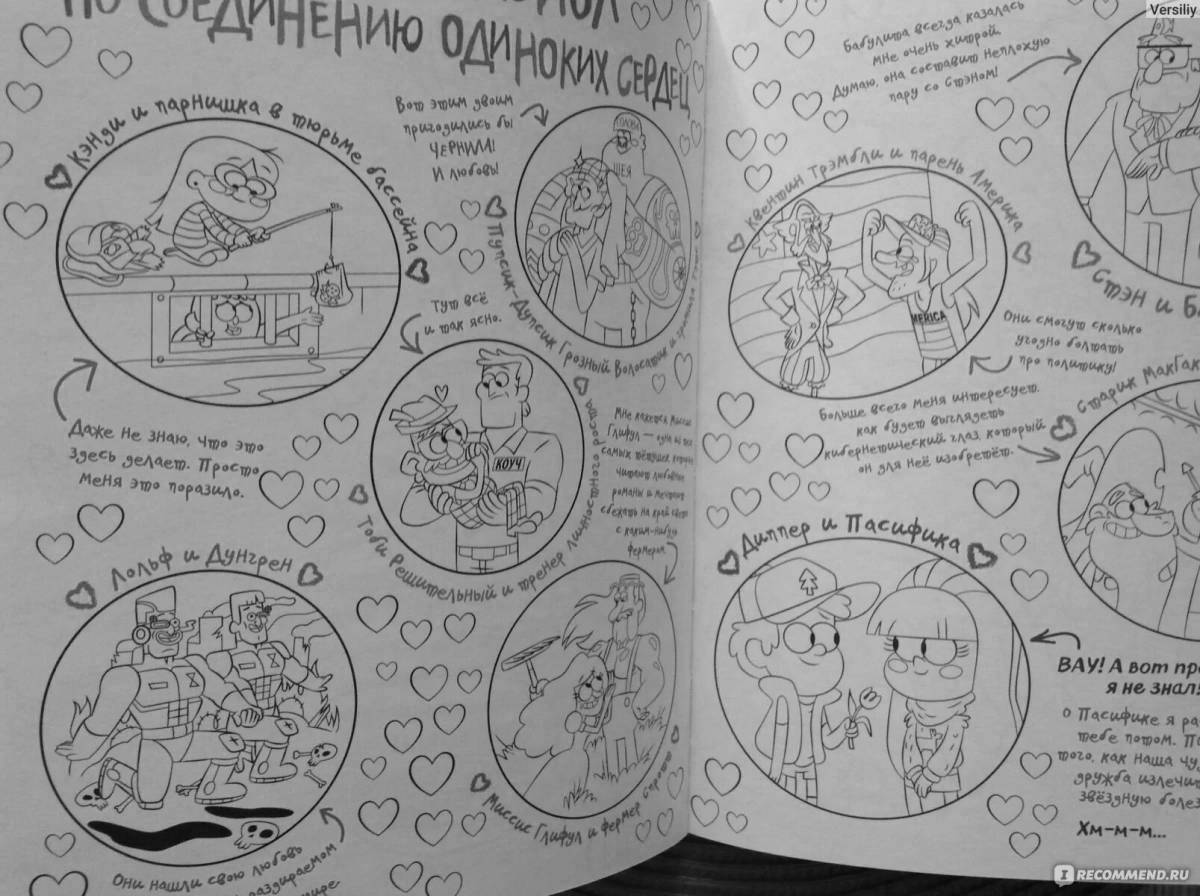 ПО СОЕДИНЕНИЮ ОДИНОКИХ СЕРДЕЦ
КЭНДИ И ПАРНИШКА В ТЮРЬМЕ БАССЕЙНА
Даже не знаю, что это
здесь делает. Просто
меня это поразило.
Вот этим двоим
пригодились бы
ЧЕРНИЛА!
И любовь!
ГОЛОВА
ШЕЯ
Пупсик-Дупсик Грозный Волосатик и
Тут всё
и так ясно.
КОУЧ
Тоби Решительный и тренер личностного роста
Мне кажется миссис
Глифул — одна из тех
самых тётушек которые
читают любовные
романы и мечтают
сбежать на край света
с каким-нибудь
фермером.
Миссис Глифул и фермер Спротт
Лольф и Дунгрен
Они нашли свою любовь
в раздираемом
мире
Versiliy
Бабулита всегда казалась
мне очень хитрой.
Думаю, она составит неплохую
пару со Стэном!
Стэн и
Квентин Трэмбли и парень Америка
MERICA
Они смогут сколько
угодно болтать
про политику!
Больше всего меня интересует,
как будет выглядеть
кибернетический глаз который
он для неё изобретёт.
Старик
Диппер и Пасифика
ВАУ! А вот
я не знал!
О Пасифике я
тебе потом.
того, как наша
дружба
звёздную
Хм-м-м...
IRECOMMEND.RU